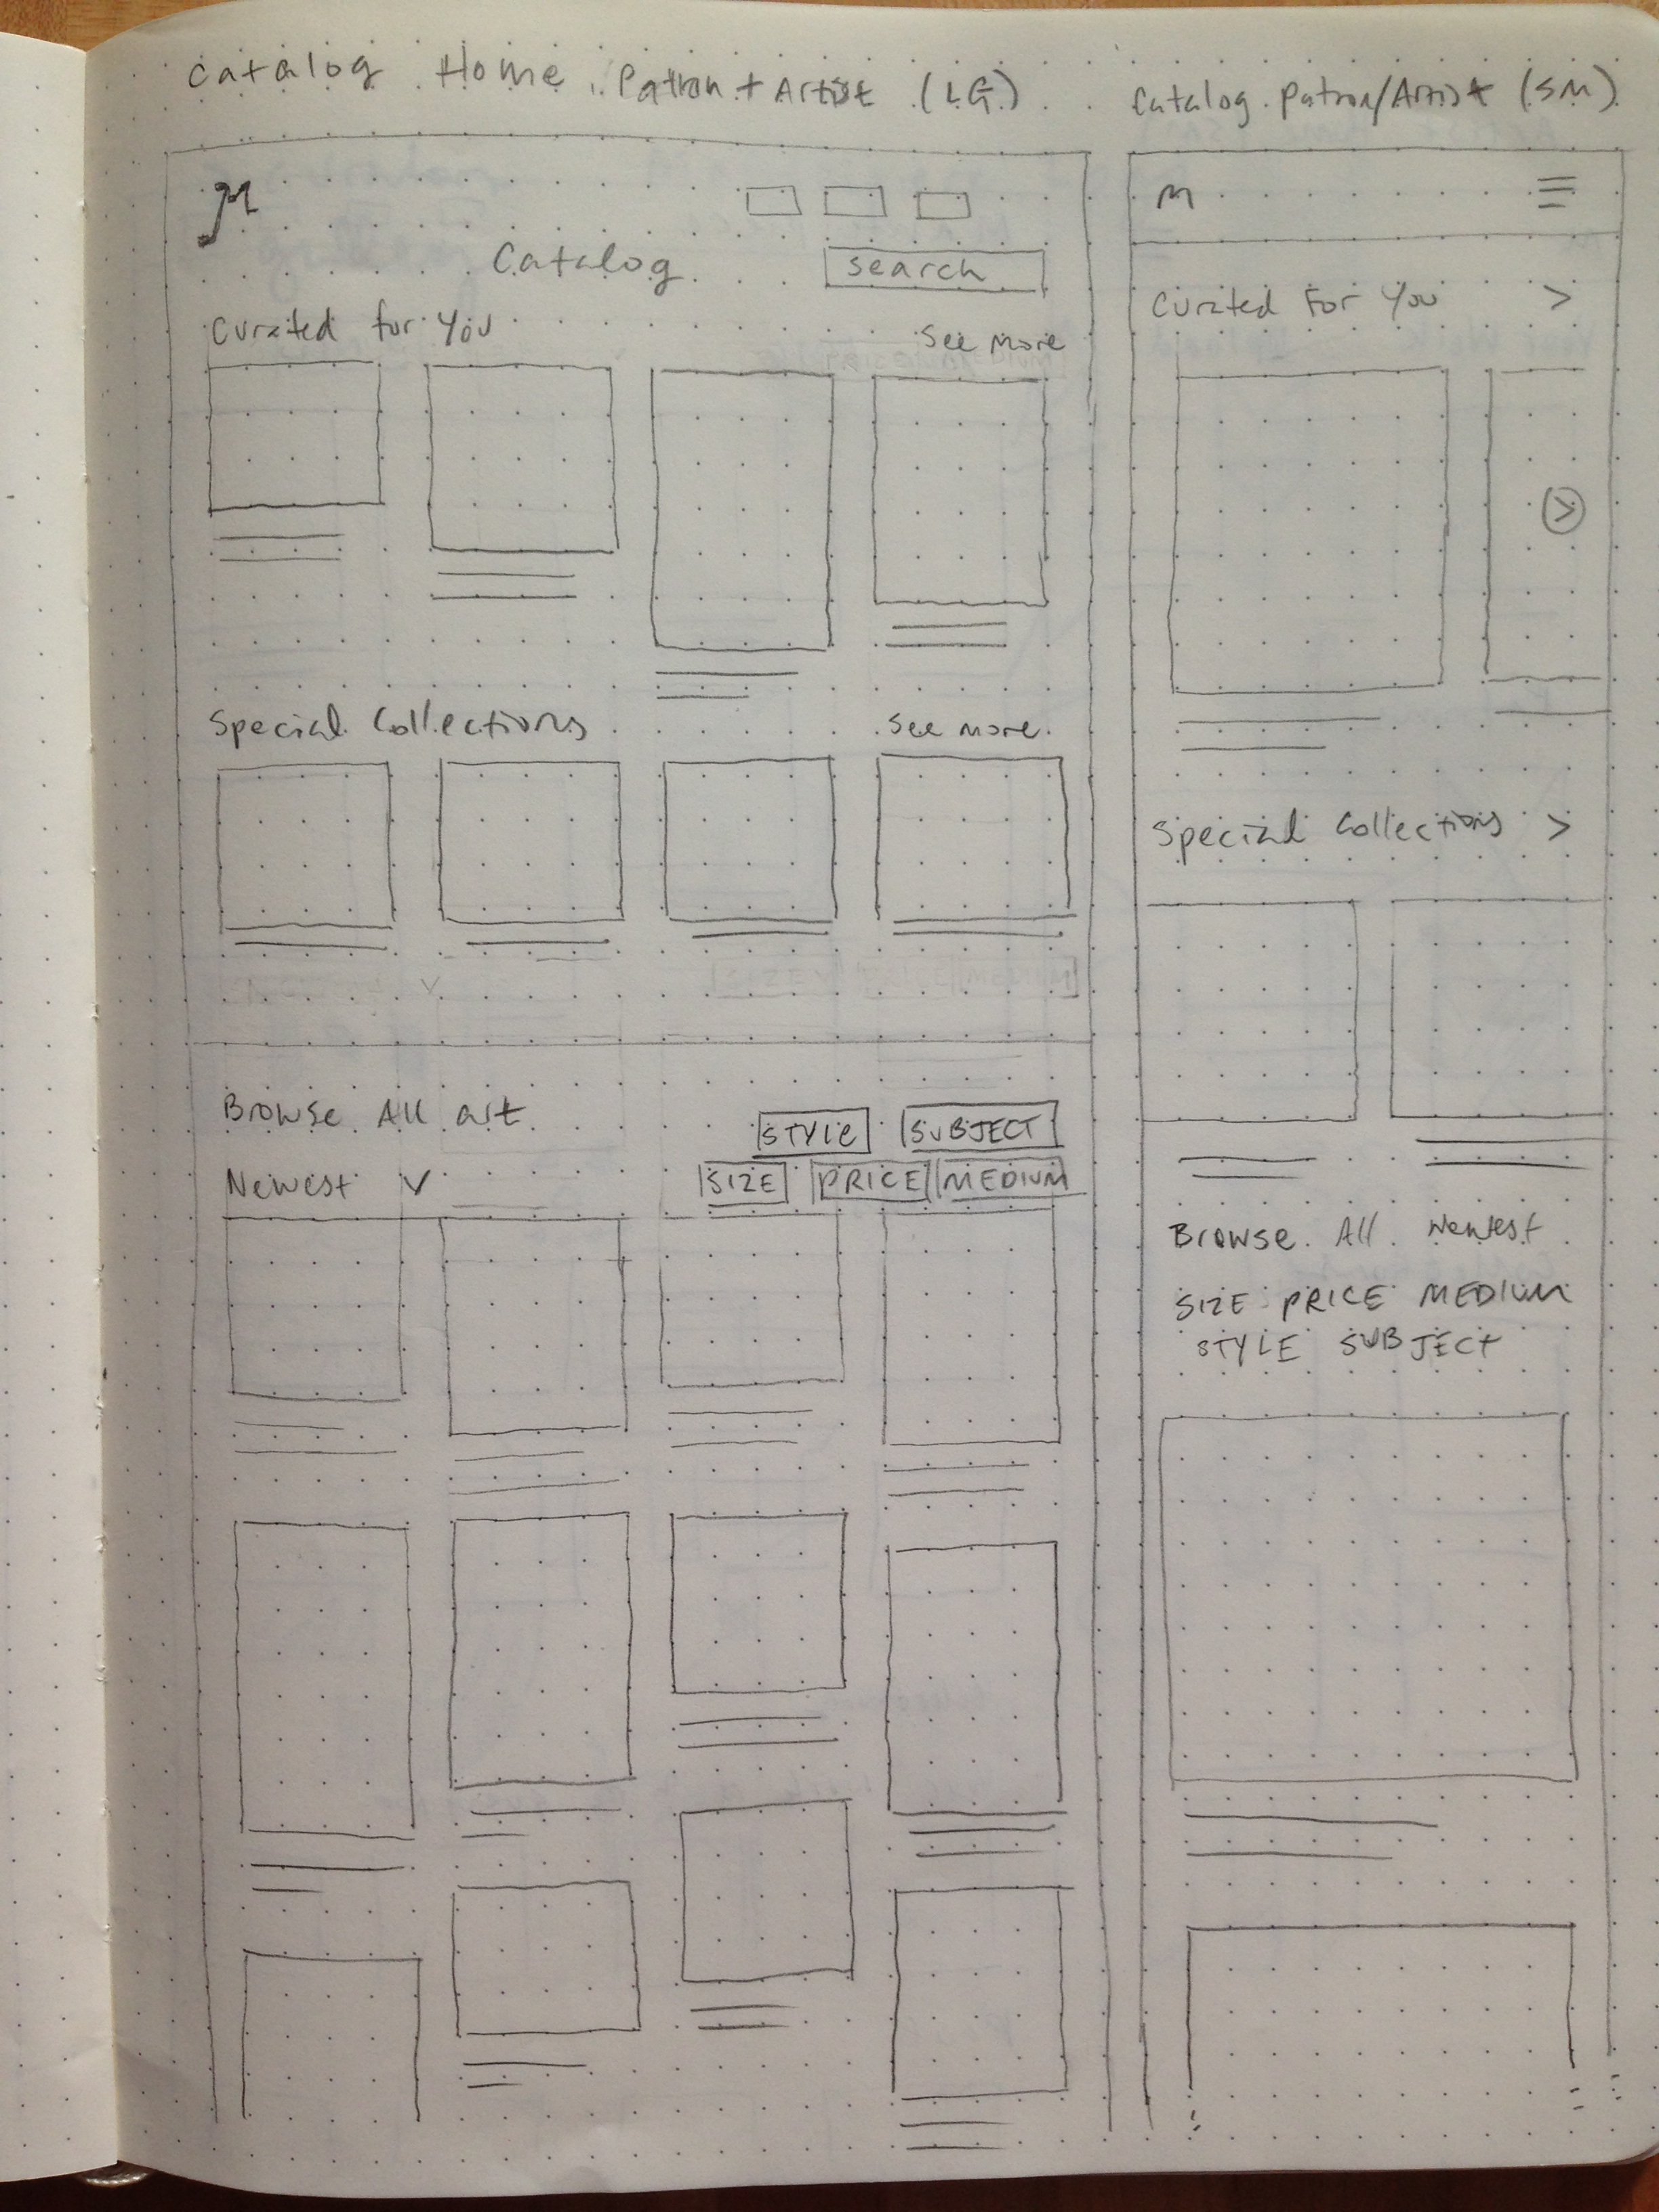 Catalog Home Patron + Artist (LG)
M
Catalog
search
Curated for You
See More
Special Collections
See more
Browse All art
STYLE SUBJECT
Newest
SIZE PRICE MEDIUM
Catalog Patron/Artist (SM)
M
Curated For You >
>
Special Collections >
Browse All Newest
SIZE PRICE MEDIUM
STYLE SUBJECT